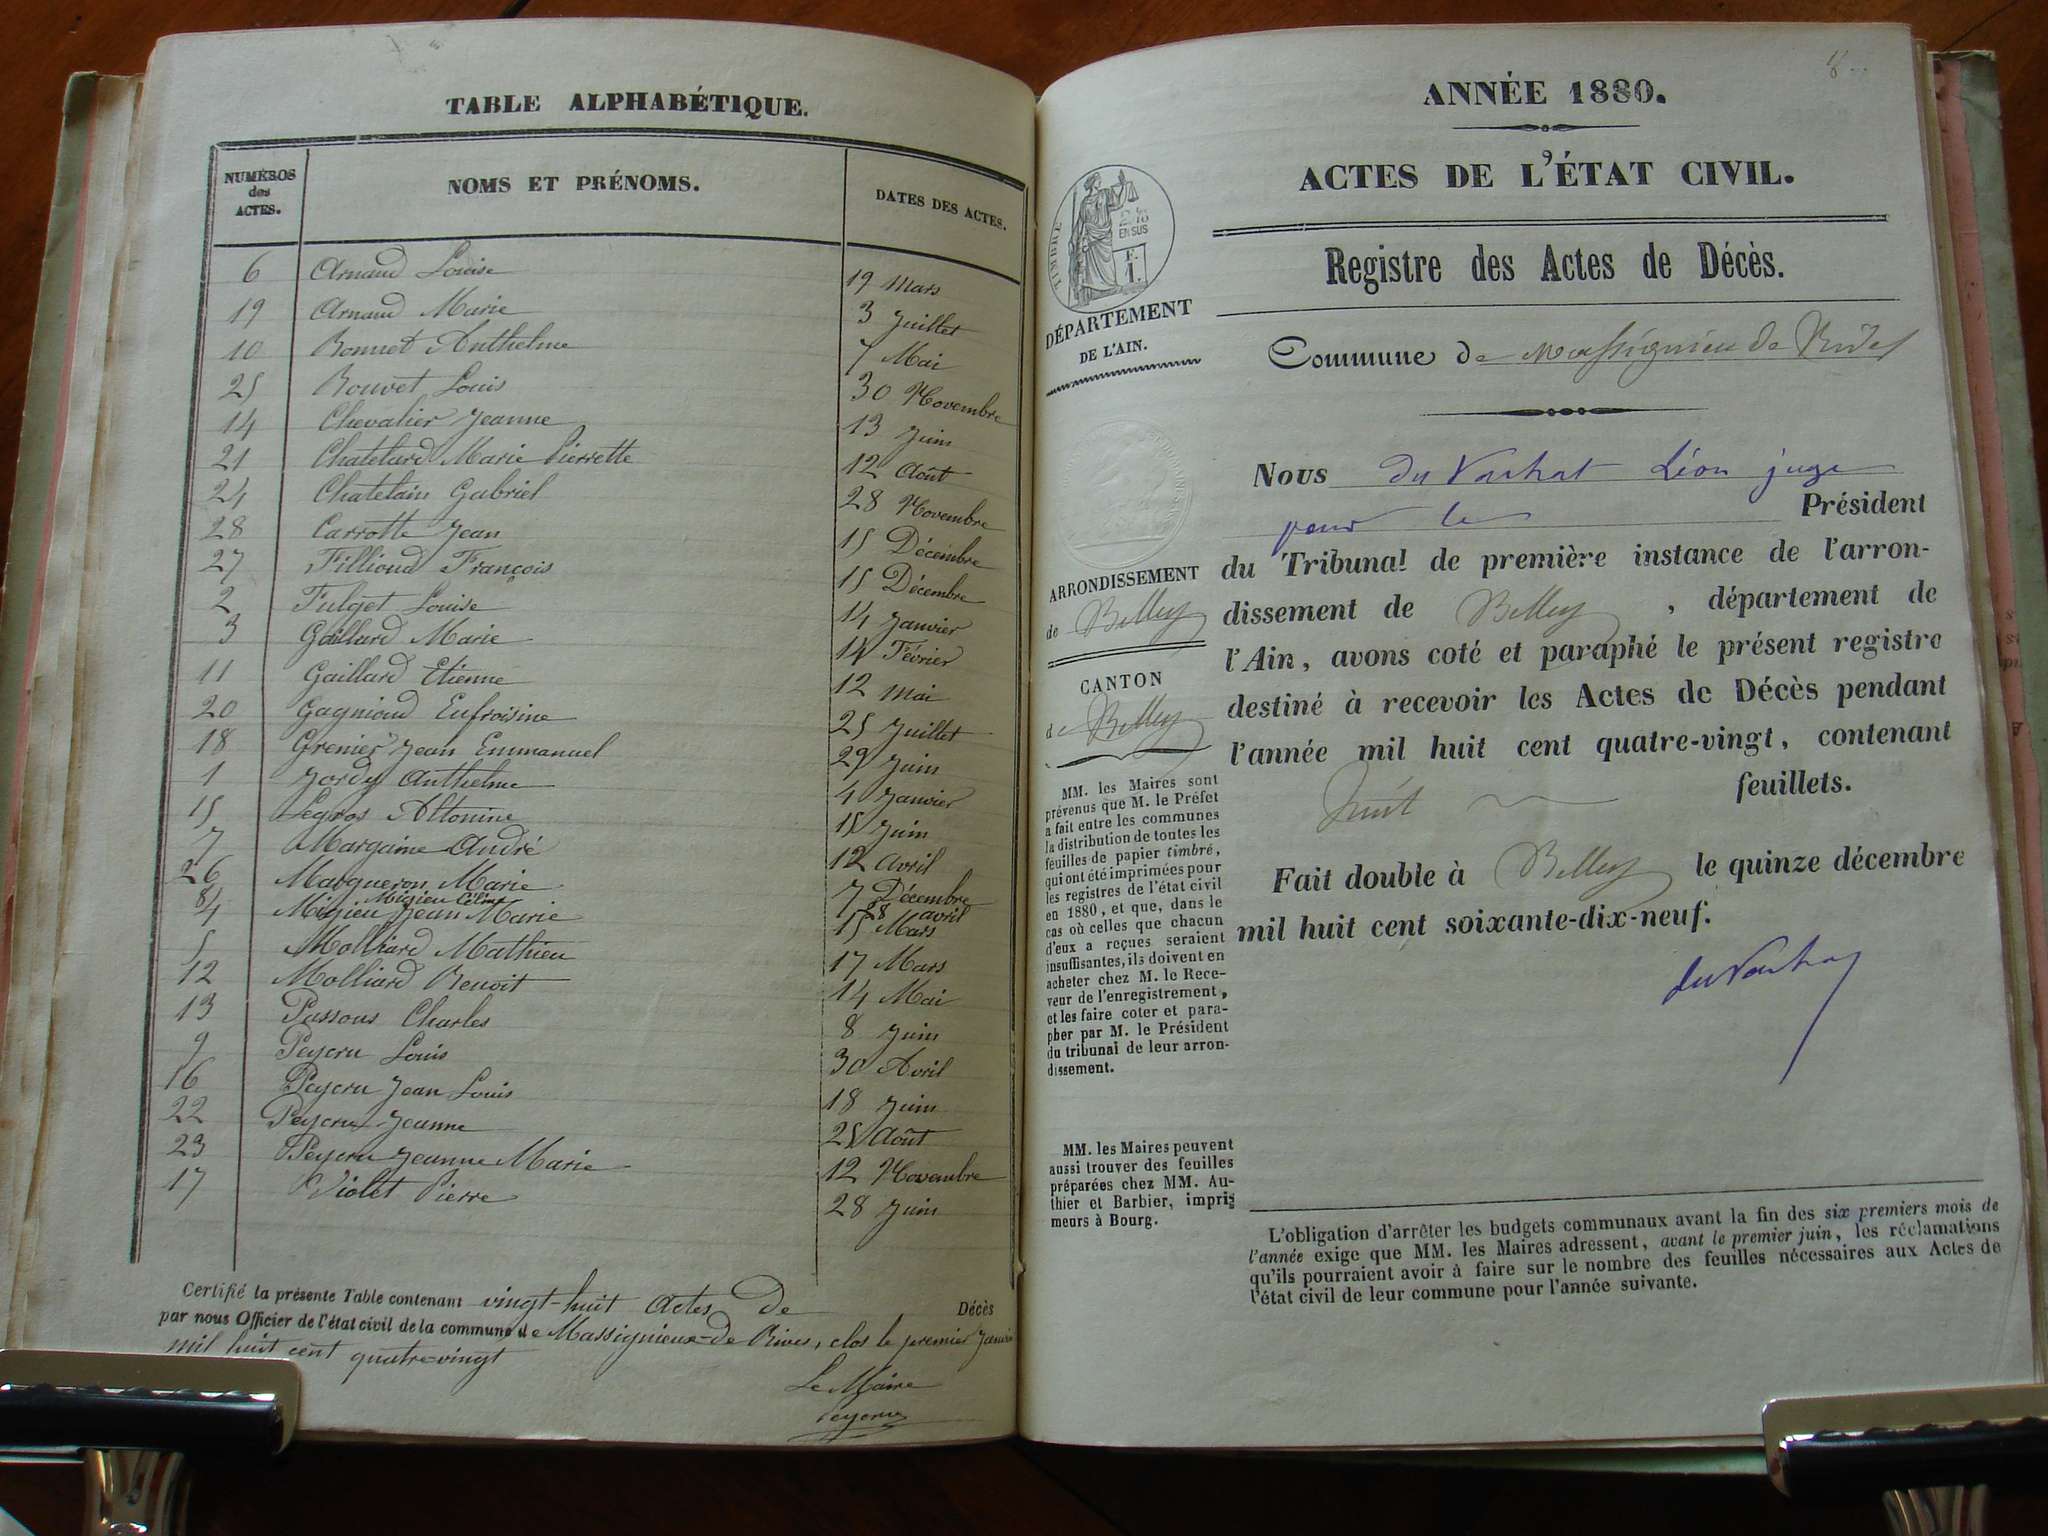 TABLE ALPHABÉTIQUE.
NUMÉROS des ACTES. NOMS ET PRÉNOMS. DATES DES ACTES.
6 Arnaud Louise 19 Mars
19 Arnaud Marie 3 Juillet
10 Bonnet Anthelme 7 Mai
25 Bouvet Louis 30 Novembre
14 Chevalier Jeanne 13 Juin
21 Chatelard Marie Pierrette 12 Août
24 Chatelain Gabriel 28 Novembre
28 Carrotte Jean 15 Décembre
27 Filliond François 15 Décembre
2 Fulget Louise 14 Janvier
3 Gaillard Marie 14 Février
11 Gaillard Etienne 12 Mai
20 Gagnioud Eufroisine 25 Juillet
18 Grenier Jean Emmanuel 29 Juin
1 Jordy Anthelme 4 Janvier
15 Legros 15 Juin
7 Margaine André 12 Avril
26 Marqueron Marie 7 Décembre
8 Migieu Céline 28 avril
4 Migieu Jean Marie 15 Mars
5 Molliard Mathieu 17 Mars
12 Molliard Benoit 14 Mai
13 Passous Charles 8 Juin
9 Peycru Louis 30 Avril
16 Peycru Jean Louis 18 Juin
22 Peycru Jeanne 25 Août
23 Peycru Jeanne Marie 12 Novembre
17 Violet Pierre 28 Juin
Certifié la présente Table contenant vingt-huit Actes de Décès
par nous Officier de l'état civil de la commune de Massignieu-de Rives, clos le premier Janvier
mil huit cent quatre-vingt
Le Maire
Peycru
8
ANNÉE 1880.
ACTES DE L'ÉTAT CIVIL.
Registre des Actes de Décès.
TIMBRE
2/10
EN SUS
F.
1.
DÉPARTEMENT
DE L'AIN.
Commune de Massignieu de Rives
ARRONDISSEMENT
de Belley
CANTON
de Belley
MM. les Maires sont
prévenus que M. le Préfet
a fait entre les communes
la distribution de toutes les
feuilles de papier timbré,
qui ont été imprimées pour
les registres de l'état civil
en 1880, et que, dans le
cas où celles que chacun
d'eux a reçues seraient
insuffisantes, ils doivent en
acheter chez M. le Rece-
veur de l'enregistrement,
et les faire coter et para-
pher par M. le Président
du tribunal de leur arron-
dissement.
MM. les Maires peuvent
aussi trouver des feuilles
préparées chez MM. Au-
thier et Barbier, impri-
meurs à Bourg.
Nous du Vachat Léon juge
pour le Président
du Tribunal de première instance de l'arron-
dissement de Belley, département de
l'Ain, avons coté et paraphé le présent registre
destiné à recevoir les Actes de Décès pendant
l'année mil huit cent quatre-vingt, contenant
huit feuillets.
Fait double à Belley le quinze décembre
mil huit cent soixante-dix-neuf.
du Vachat
L'obligation d'arrêter les budgets communaux avant la fin des six premiers mois de
l'année exige que MM. les Maires adressent, avant le premier juin, les réclamations
qu'ils pourraient avoir à faire sur le nombre des feuilles nécessaires aux Actes de
l'état civil de leur commune pour l'année suivante.